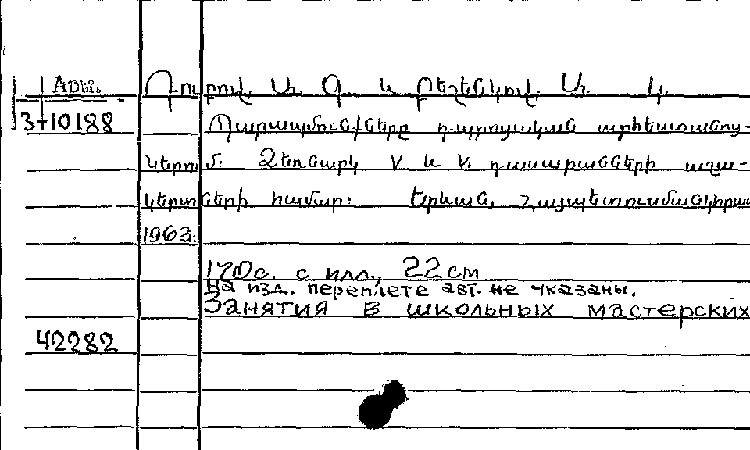 Арм. Դուրով Ա. Գ. և Բեշենկով. Ա. Կ.
3-10188 Պարապմունքները դպրոցական արհեստանոց-
ներում. Ձեռնարկ V և VI դասարանների աշա-
կերտների համար: Երևան, Հայպետուսմանկհրատ
1963.
170с. с илл., 22 см
На изд. переплете авт. не указаны.
Занятия в школьных мастерских
42282